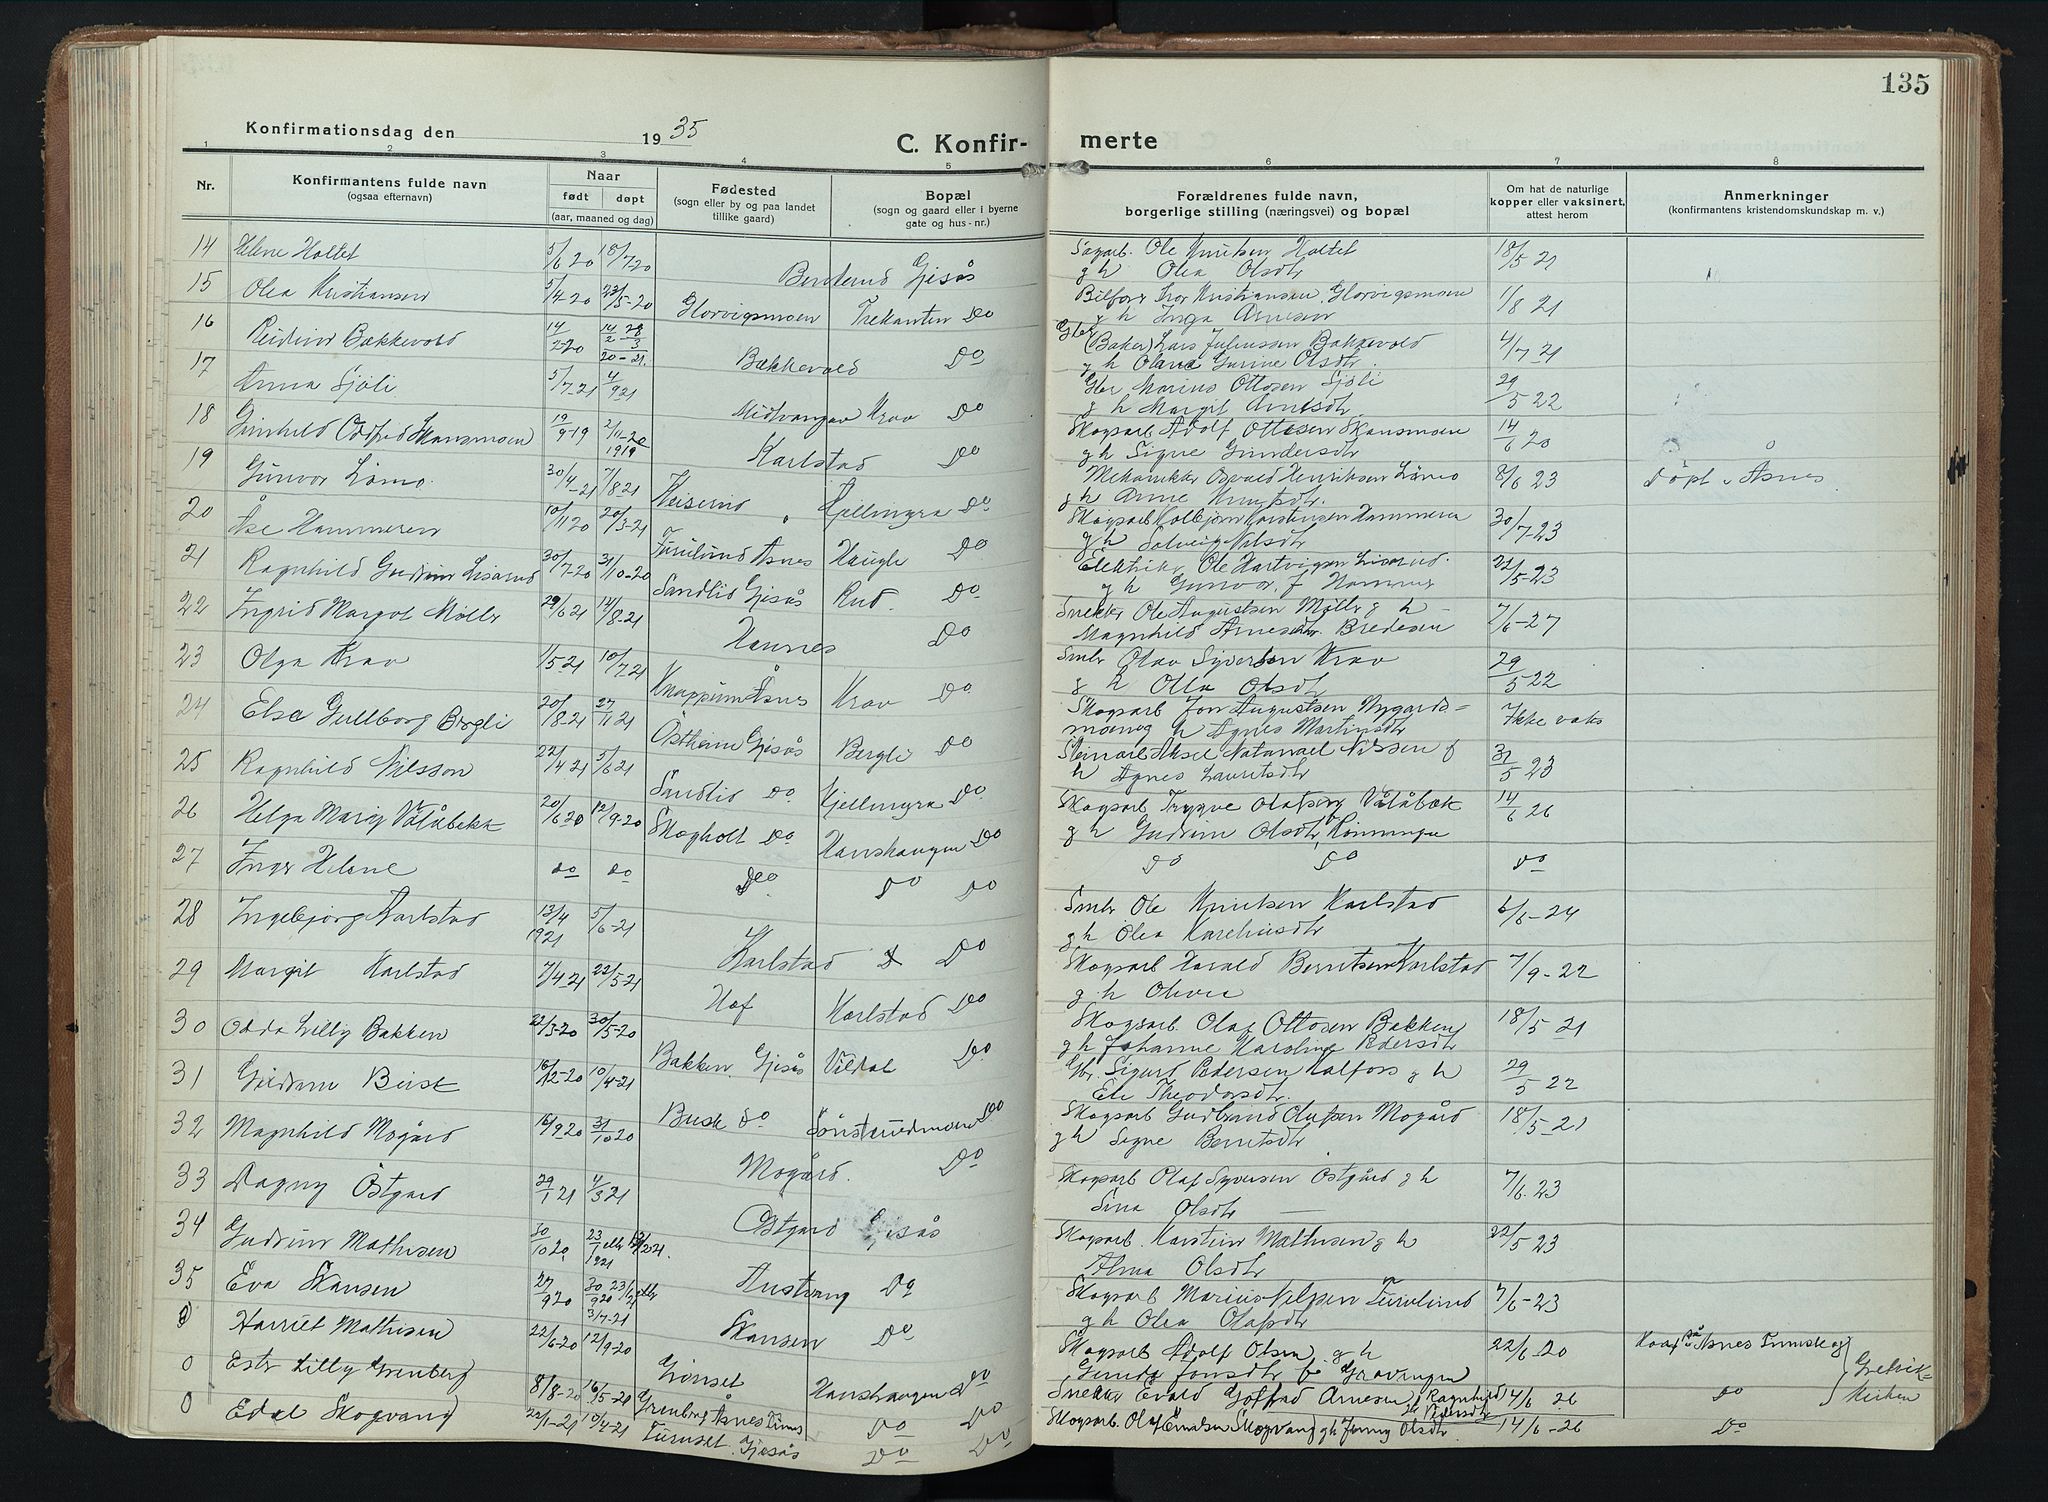 135
Konfirmationsdag den 1935
C. Konfir-
merte
1 2 3 4 5 6 7 8
Nr.
Konfirmantens fulde navn
(ogsaa efternavn)
Naar
født døpt
(aar, maaned og dag)
Fødested
(sogn eller by og paa landet
tillike gaard)
Bopæl
(sogn og gaard eller i byerne
gate og hus-nr.)
Forældrenes fulde navn,
borgerlige stilling (næringsvei) og bopæl
Om hat de naturlige
kopper eller vaksinert,
attest herom
Anmerkninger
(konfirmantens kristendomskundskap m. v.)
14 Helene Holtet 5/6 20 18/7 20 Gjesås
Ole Knutsen Holtet 18/5 21
g h Olea Olsdtr
15 Olea Kristiansen 5/4-20 23/5-20 Glorvigsmoen Trekanten Do
Kristiansen, Glorvigsmoen 1/8 21
g h Inga Arnesen
16 Reidun Bakkevold 14/2-20 Bakkevold Do
(Baker) Lars Juliussen Bakkevold 4/7 21
g h Olava Gurine Olsdtr.
17 Anna Sjöli 5/7-21 4/9 21 Midtvangen Krav Do
Gbr Marius Ottosen Sjöli 29/5 22
g h Margit Arnesdtr.
18 Gunhild Oddfrid Skansmoen 19/9-19 Karlstad Do
Skogsarb Adolf Ottosen Skansmoen 14/6 20
g h Signe Gundersdtr
19 Gunvor Lömo. 30/4-21 7/8-21 Kjellmyra Do
Mekaniker Osvald Henriksen Lömo 8/6 23 Döpt i Åsnes
g h Anne Knutsdtr.
20 Åse Hammeren 10/11 20 20/3-21 Furulund Åsnes Haugli Do
Skogsarb Kolbjörn Karstensen Hammeren 30/7-23
g h Solveig Nilsdtr
21 Ragnhild Gudrun Liserud 30/7-20 31/10-20 Sandlid Gjesås Rud. Do
Elektriker Ole Hartvigsen Liserud. 22/5-23
g h Gunvor f. Hammer
22 Ingrid Margot Möller 29/6 21 14/8-21 Hannes Do
Snekker Ole Augustsen Möller g h - 7/6-27
Magnhild Arnesdtr Bredesen
23 Olga Krav 1/5-21 10/7 21 Åsnes Krav Do
Smbr Olav Syversen Krav 29/5 22
g h Olea Olsdtr
24 Else Gullborg Bergli 20/8-21 27/11 21 Östheim Gjesås Bergli Do
Skogsarb Jon Augustsen Nygards= Ikke vaks
moen g h Agnes Martinsdtr
25 Ragnhild Nilsson 22/4 21 5/6 21 Sandlid Do Kjellmyra Do
Aksel Natanael Nilssen g 31/5 23
h Agnes Lauritsdtr
26 Helga Marie Vålåbekk 20/6 20 12/9-20 Skogholt Do Hanshaugen Do
Skogsarb Trygve Olafsen Vålåbæk 14/6 26
g h Gudrun Olsdtr, Rönningen
27 Inger Helene Do Do Do Do Do
Do Do Do
28 Ingebjörg Karlstad 13/4 1921 5/6-21 Karlstad Do
Smbr Ole Knutsen Karlstad 6/6-24
g h Olea Karelinsdtr
29 Margit Karlstad 7/4-21 22/5-21 Hof Karlstad Do
Skogsarb Harald Berntsen Karlstad 7/9-22
g h Olivie
30 Odda Lilly Bakken 22/3-20 30/5-20 Bakken. Gjesås Vildal Do
Skogsarb. Olaf Ottosen Bakken 18/5 21
g h Johanne Karoline Pedersdtr
31 Gudrun Busk 16/12-20 10/4-21 Busk Do Do
Gbr. Sigurd Pedersen Kalfoss g h 29/5 22
Eli Theodorsdtr.
32 Magnhild Mogård 16/9 20 31/10 20 Mogård. Do
Skogsarb Gudbrand Olafsen Mogård 18/5-21
g h Signe Berntsdtr
33 Dagny Östgård 29/1 21 4/3 21 Östgård Gjesås
Skogsarb Olaf Syversen Östgård g h 7/6.23
Sina Olsdtr
34 Gudrun Mathisen 30/10 20 Austvang Do
Skogsarb. Karstein Mathisen g h 22/5 23
Alma Olsdtr
35 Eva Skansen 27/9 20 Skansen Do
Skogsarb Marius Furulund 7/6-23
g h Olea Olafsdtr
0 Harriet Mathisen 22/6-20 12/9-20 Grönset Hanshaugen Do
Skogsarb Adolf Olsen g h 22/6-20
Gunda Jonsdtr
0 Lilly Grenberg 8/8-20 16/5-21 Grenberg Åsnes Finns Do Do
Snekker Evald Arnesen g Ragnhild Pedersdtr 14/6 26 Do
0 Edel Skogvang 22/1-21 10/4-21 Furuset. Gjesås Do Do
Skogsarb. Olaf Skogvang g h Jenny Olsdtr 14/6-26 Do